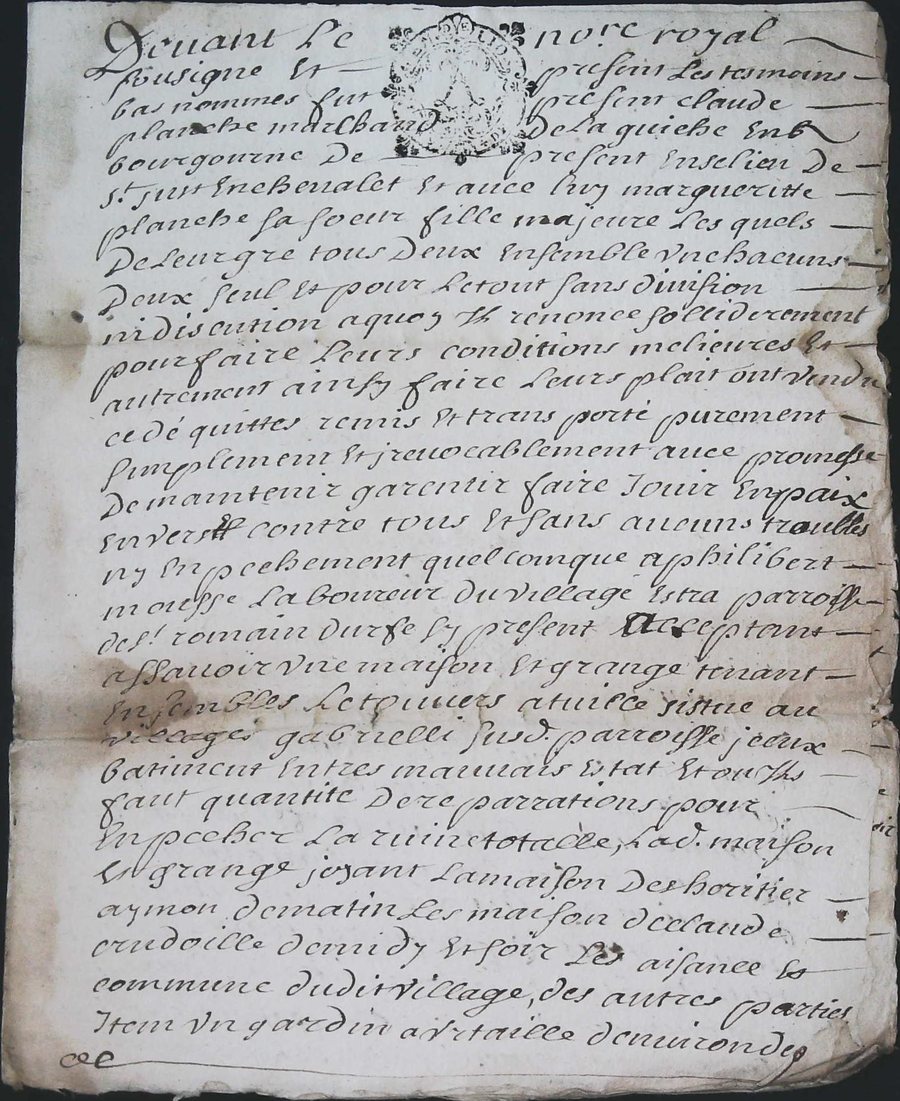 Devant Le no.re royal
sousigne Et present Les tesmoins
bas nommes fut present claude
planche marchand De La guiche En b
bourgourne De present En se lieu De
s.t just En chevalet Et avec luy margueritte
planche sa soeur fille majeure Les quels
De Leur gre tous Deux Ensemble un chacuns
Deux seul Et pour Le tout sans division
ni discution a quoy renonce solliderement
pour faire Leurs conditions melieures Et
autrement ainsy faire Leurs plait ont vendu
cedé quittes remis Et trans porté purement
simplement Et jrevocablement avec promesse
De maintenir garentir faire Jouir En paix
Envers Et contre tous Et sans aucuns troubles
ny En pechement quelcomque a philibert
mousse Laboureur Du village Estra parroisse
de s.t romain durfe sy present Acceptant
assavoir une maison Et grange tenant
Ensembles Le touvers a tuille sistue au
villages gabrielli susd. parroisse jceux
batiment En tres mauvais Estat Et ou Jls
faut quantite De re parrations pour
En pecher La ruine totalle, Lad. maison
Et grange joyant La maison Des horitier
aymon de matin Les maison de claude
crudoille de midy Et soir Les aisance Et
commune dudit village, des autres parties
Jtem un gardin a vr taille d'environ de